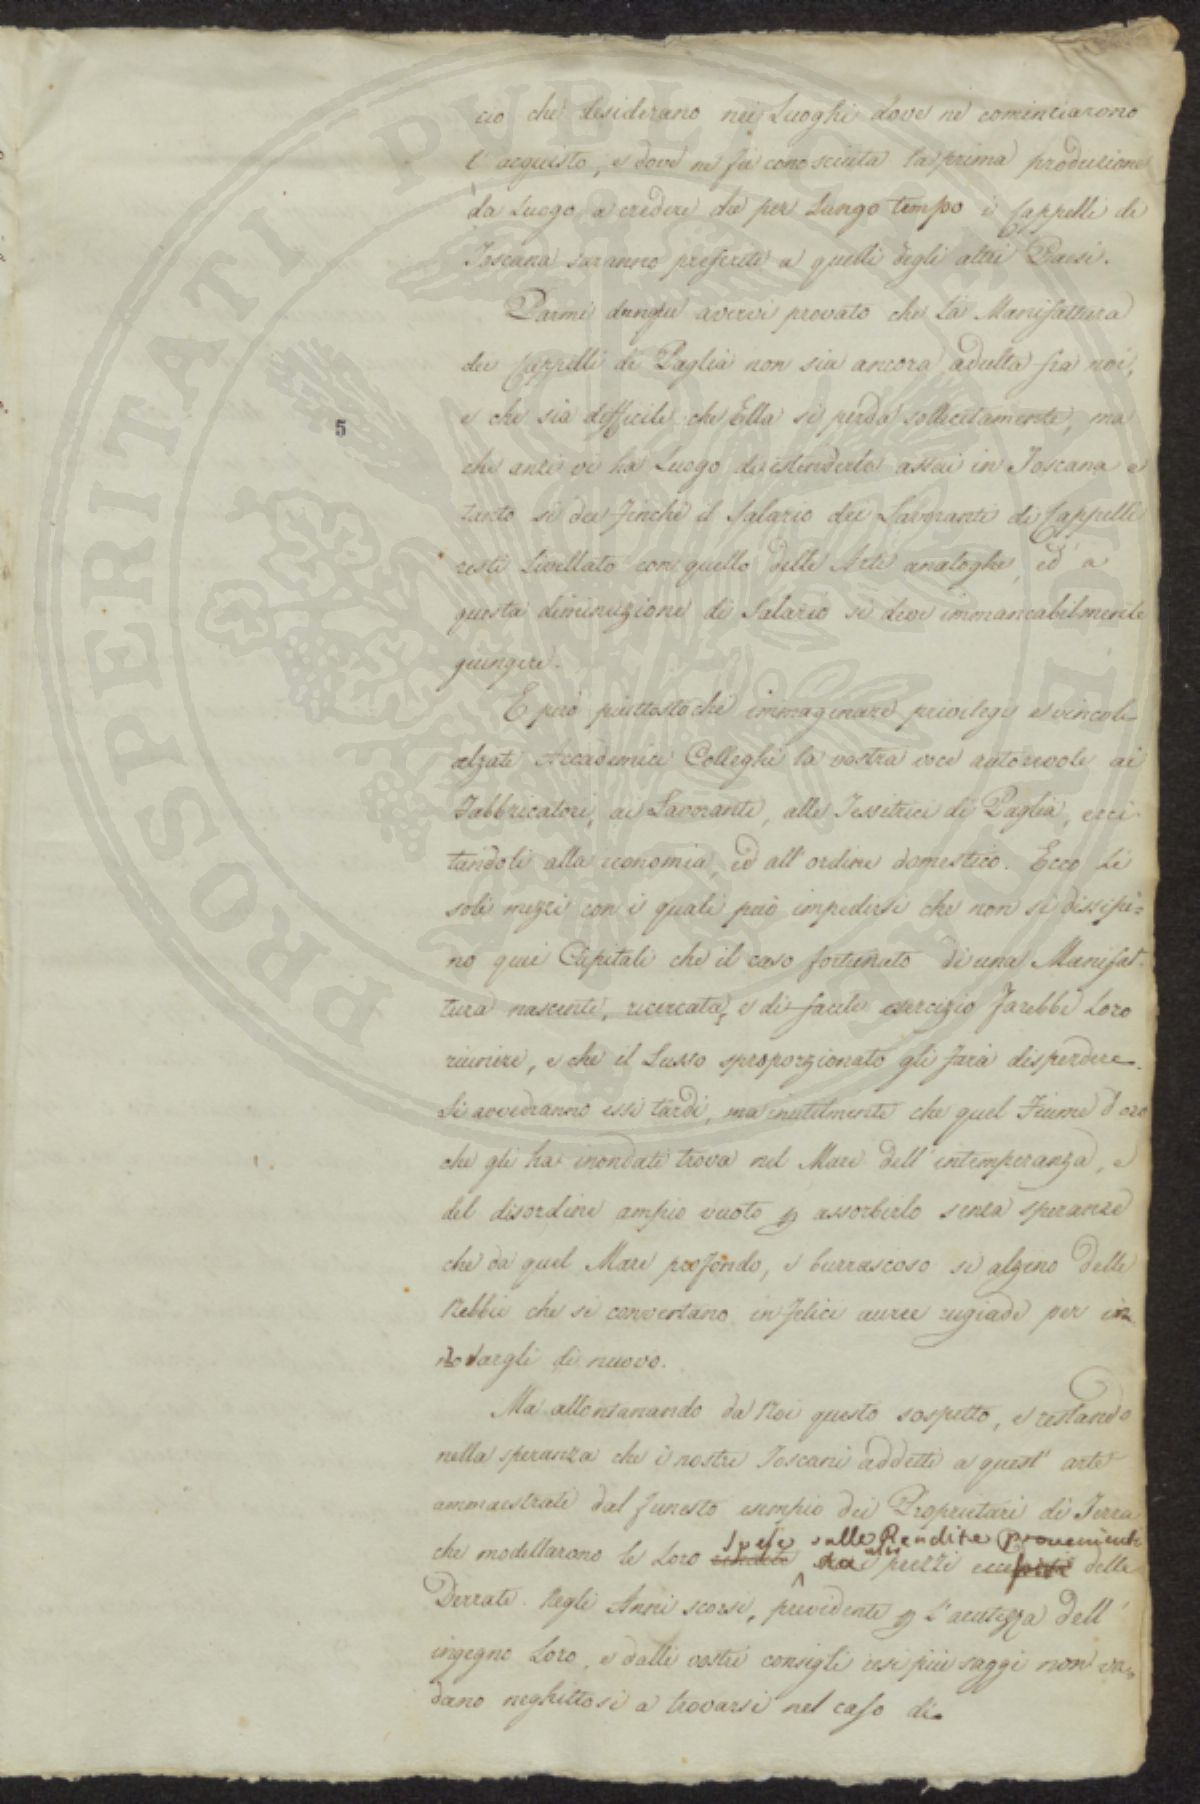 ciò che desiderano nei Luoghi dove ne cominciarono
l'acquisto, e dove ne fu conosciuta la prima produzione
da Luogo a credere che per Lungo tempo i Cappelli di
Toscana saranno preferiti a quelli degli altri Paesi.
Parmi dunque avervi provato che La Manifattura
dei Cappelli di Paglia non sia ancora adulta fra noi,
e che sia difficile che Ella si perda sollecitamente, ma
che anzi vi ha Luogo di estenderla assai in Toscana e
tanto si dee finchè il Salario dei Lavoranti di Cappelli
resti Livellato con quello delle Arti analoghe, ed a
questa diminuzione di Salario si deve immancabilmente
giungere.
E però piuttosto che immaginare privilegi e vincoli
alzate Accademici Colleghi la vostra voce autorevole ai
Fabbricatori, ai Lavoranti, alle Tessitrici di Paglia, ecci-
tandoli alla economia, ed all'ordine domestico. Ecco Li
soli mezzi con i quali può impedirsi che non si dissipi=
no quei Capitali che il caso fortunato di una Manifat-
tura nascente, ricercata, e di facile esercizio farebbe Loro
riunire, e che il Lusso sproporzionato gli farà disperdere.
Si avvedranno essi tardi, ma inutilmente che quel Fiume d'oro
che gli ha inondati trova nel Mare dell'intemperanza, e
del disordine ampio vuoto p assorbirlo senza speranze
che da quel Mare profondo, e burrascoso si alzino delle
Nebbie che si convertano in felici auree rugiade per in-
nondargli di nuovo.
Ma allontanando da Noi questo sospetto, e restando
nella speranza che i nostri Toscani addetti a quest'arte
ammaestrati dal funesto esempio dei Proprietari di Terra
Spese sulle Rendite provenienti
che modellarono le Loro rendite dai prezzi delle
Derrate Negli Anni scorsi, previdenti p L'acutezza dell'
ingegno Loro, e dalli vostri consigli resi più saggi non va-
dano neghittosi a trovarsi nel caso di
5
PROSPERITATI PVBLICAE AVGENDAE